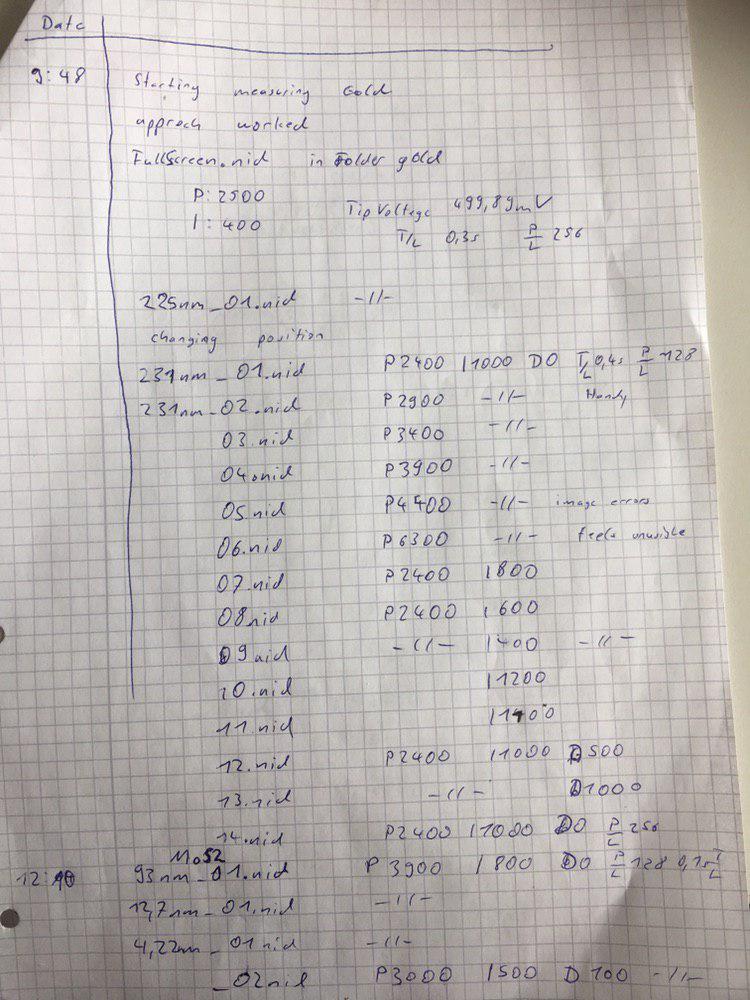 Date
9:48 Starting measuring Gold
approch worked
Fullscreen.nid in Folder gold
P: 2500 Tip Voltage 499,89mV
I: 400 T/L 0,3s P/L 256
225nm_01.nid -//-
changing position
231nm_01.nid P2400 I1000 D0 T/L 0,4s P/L 128
231nm_02.nid P2900 -//- Handy
03.nid P3400 -//-
04.nid P3900 -//-
05.nid P4400 -//- image errors
06.nid P6300 -//- feels
07.nid P2400 I800
08.nid P2400 I600
09.nid -//- I400 -//-
10.nid I1200
11.nid I1400
12.nid P2400 I1000 D500
13.nid -//- D1000
14.nid P2400 I1000 D0 P/L 256
MoS2
12:10 93nm_01.nid P3900 I800 D0 P/L 128 T/L
12,7nm_01.nid -//-
4,22nm_01.nid -//-
_02nid P3000 I500 D100 -//-